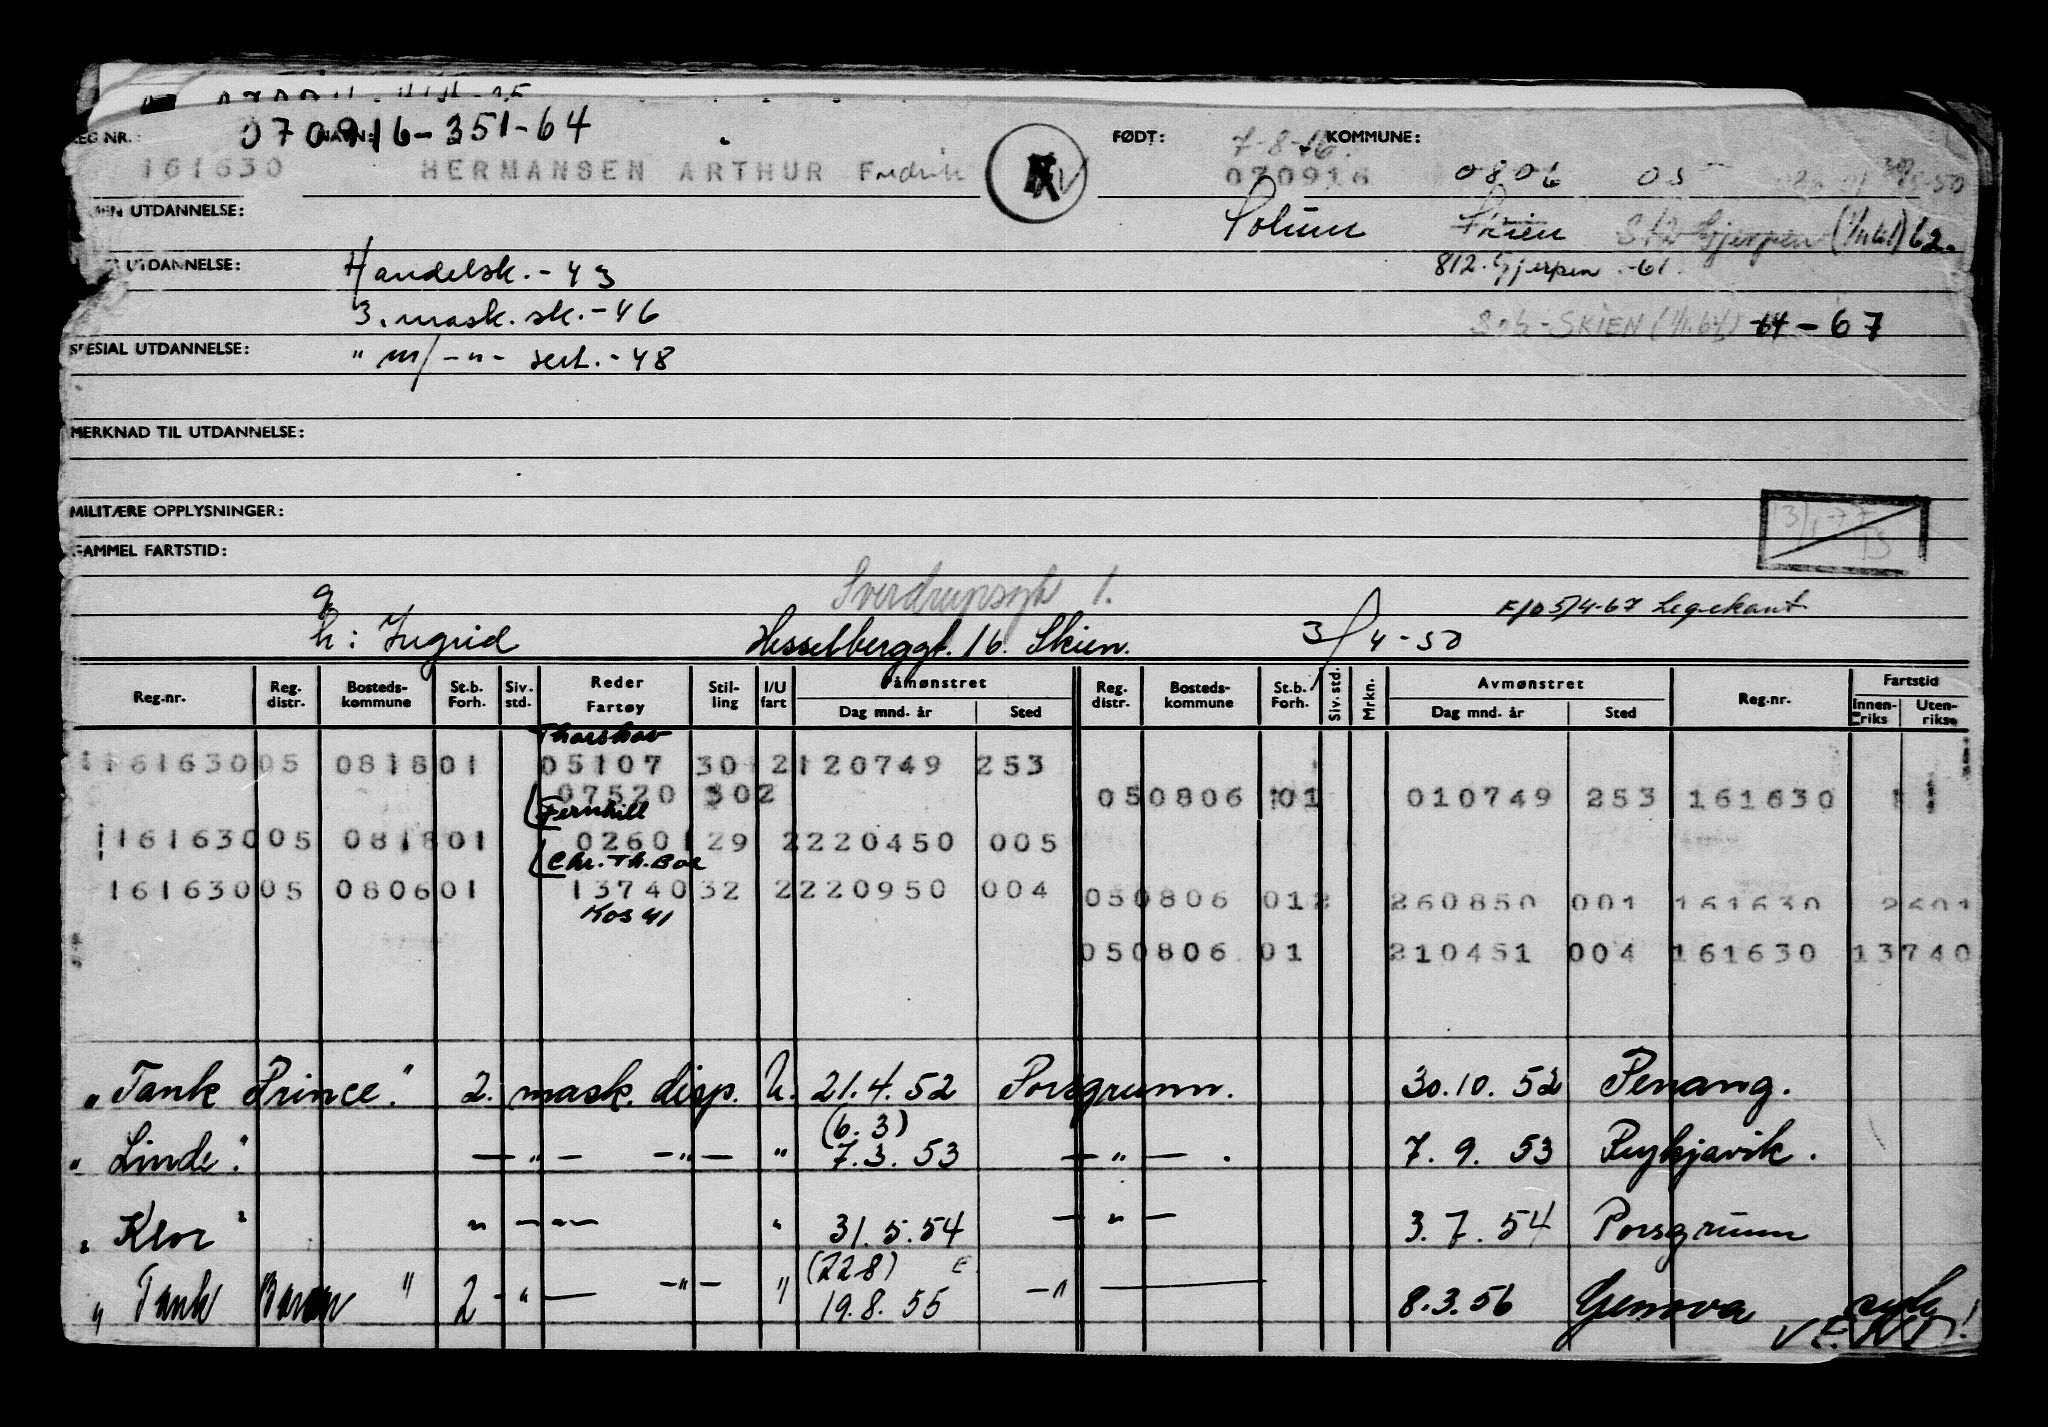 070916-351-64
REG NR.: NAVN: FØDT: 7-8-16. KOMMUNE:
161630 HERMANSEN ARTHUR Fredrik V 070916 0806 05
UTDANNELSE: Solum Skien 812 Gjerpen (1/1 61) 62.
UTDANNELSE: Handelsk. - 43 812. Gjerpen -61.
3. mask. sk. - 46 806 - SKIEN (1/1.64) 64 - 67
SPESIAL UTDANNELSE: " m/ - " - sert. - 48
MERKNAD TIL UTDANNELSE:
MILITÆRE OPPLYSNINGER:
GAMMEL FARTSTID:
Sverdrupsgt 1.
F/O 5/4-67 Legekant
g
h: Ingrid Hesselberggt. 16. Skien. 3/4-50
Reg.nr. Reg. distr. Bosteds- kommune St.b. Forh. Siv. std. Reder Fartøy Stil- ling I/U fart Påmønstret Dag mnd. år Sted Reg. distr. Bosteds- kommune St.b. Forh. Siv. std. Mrkn. Avmønstret Dag mnd. år Sted Reg.nr. Fartstid Innen- riks Uten- riks
Thorshov
161630 05 0818 01 05107 30 2 120749 253
07520 302 05 0806 01 010749 253 161630
Fernhill
161630 05 0818 01 02601 29 2 220450 005
Chr. Th. Boe
161630 05 0806 01 13740 32 2 220950 004
05 0806 012 260850 001 161630 2601
Kos 41
05 0806 01 210451 004 161630 13740
"Tank Prince." 2. mask. disp. U. 21.4.52 Porsgrunn. 30.10.52 Penang.
(6.3)
"Linde". - " - - " - " 7.3.53 - " - . 7.9.53 Reykjavik.
"Klor" " - " - " 31.5.54 - " - 3.7.54 Porsgrunn
(22 8) E
"Tank Baron" 2 - " - - " - " 19.8.55 - " - 8.3.56 Genova syk
VEND!